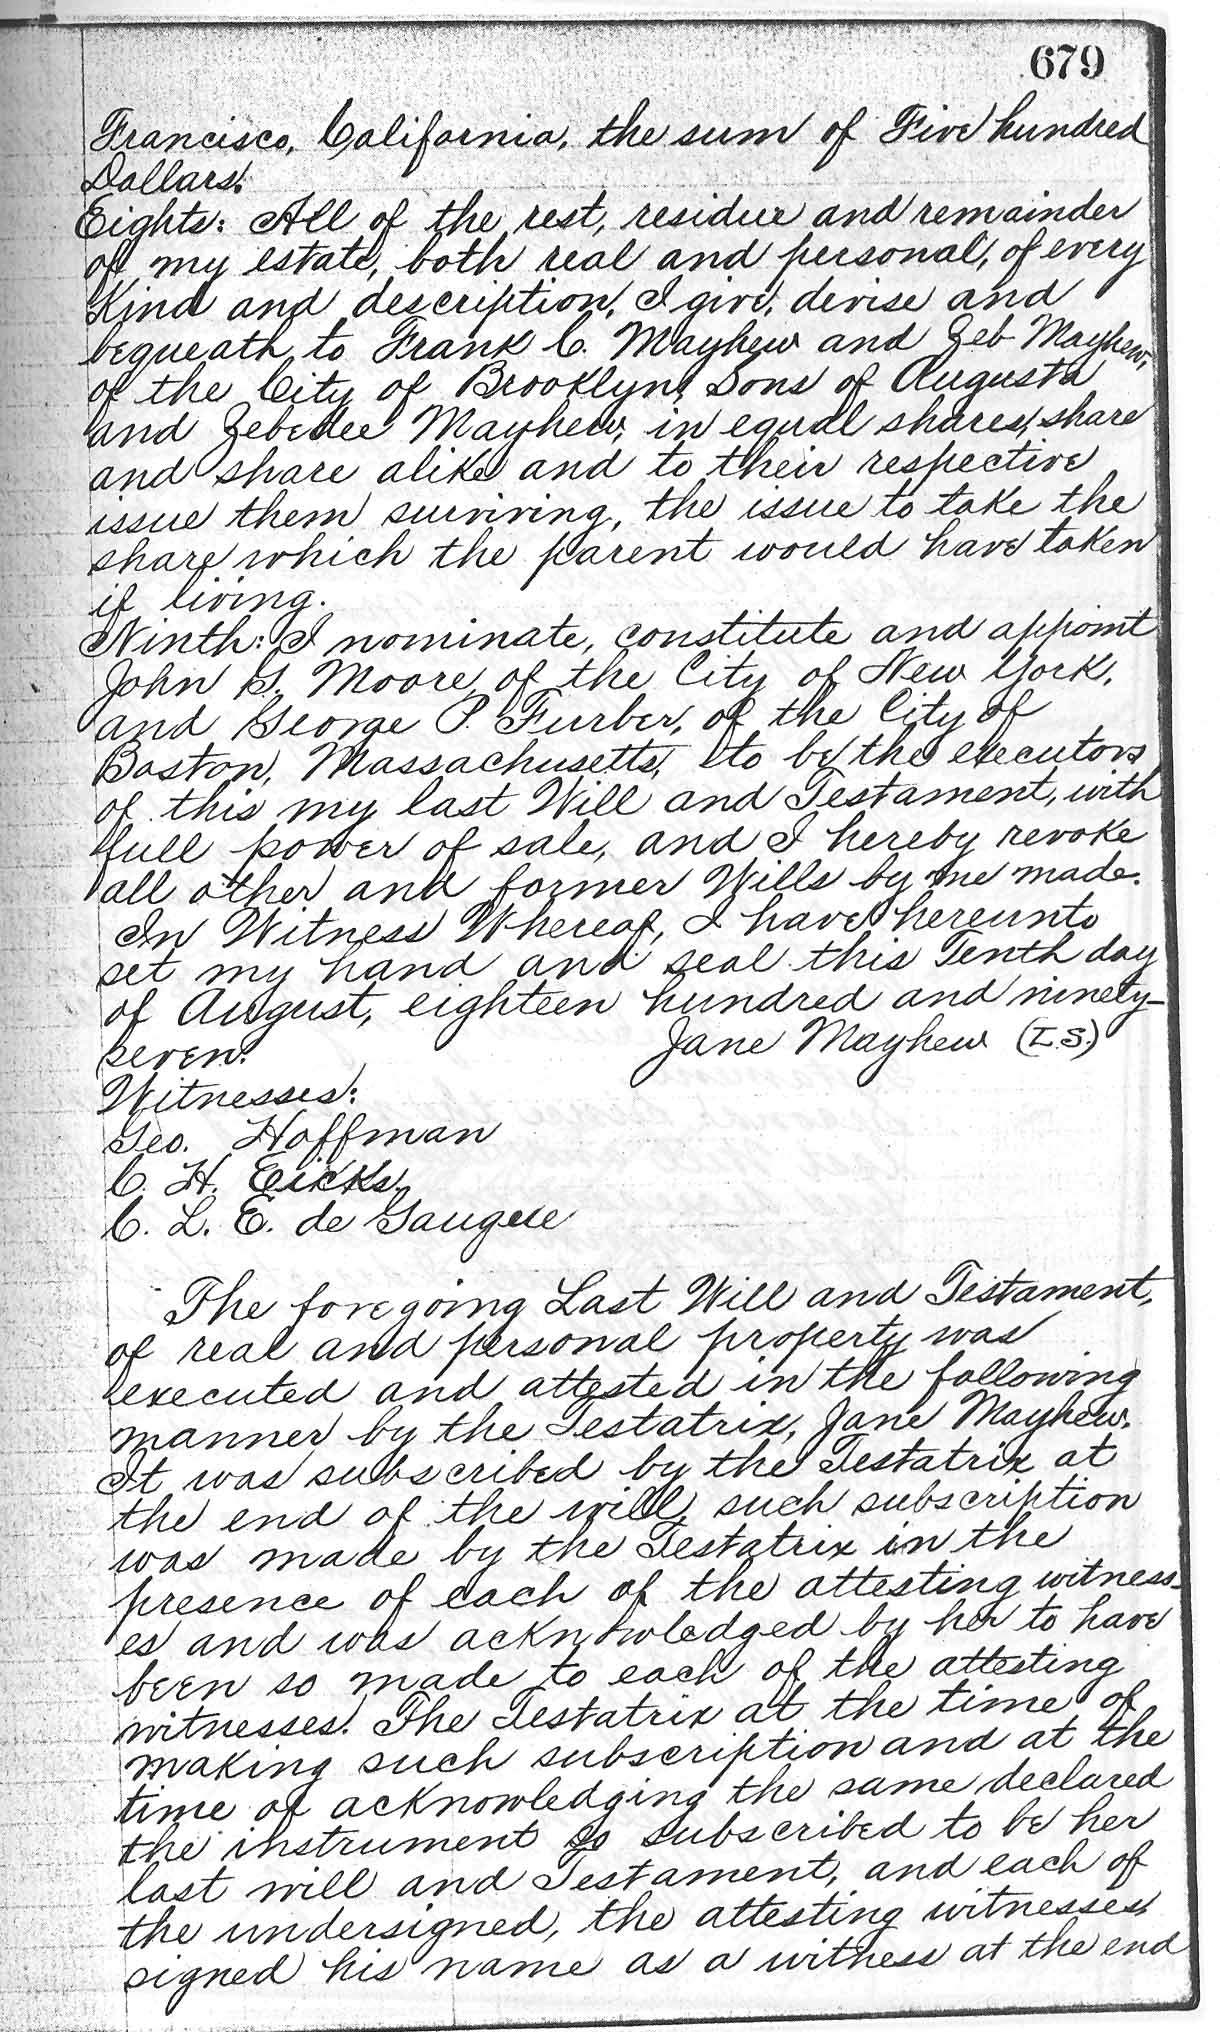 679
Francisco, California, the sum of Five hundred
Dollars.
Eights: All of the rest, residue and remainder
of my estate, both real and personal, of every
Kind and description, I give, devise and
bequeath to Frank C. Mayhew and Zeb Mayhew,
of the City of Brooklyn, Sons of Augusta
and Zebedee Mayhew, in equal shares, share
and share alike and to their respective
issue them surviving, the issue to take the
share which the parent would have taken
if living.
Ninth: I nominate, constitute and appoint
John G. Moore, of the City of New York,
and George P. Furber, of the City of
Boston, Massachusetts, to be the executors
of this my last Will and Testament, with
full power of sale, and I hereby revoke
all other and former Wills by me made.
In Witness Whereof, I have hereunto
set my hand and seal this Tenth day
of August, eighteen hundred and ninety-
seven. Jane Mayhew (L.S.)
Witnesses:
Geo. Hoffman
C. H. Eickks.
C. L. E. de Gaugue
The foregoing Last Will and Testament,
of real and personal property was
executed and attested in the following
manner by the Testatrix, Jane Mayhew.
It was subscribed by the Testatrix at
the end of the will, such subscription
was made by the Testatrix in the
presence of each of the attesting witness-
es and was acknowledged by her to have
been so made to each of the attesting
witnesses. The Testatrix at the time of
making such subscription and at the
time of acknowledging the same, declared
the instrument so subscribed to be her
last will and Testament, and each of
the undersigned, the attesting witnesses,
signed his name as a witness at the end